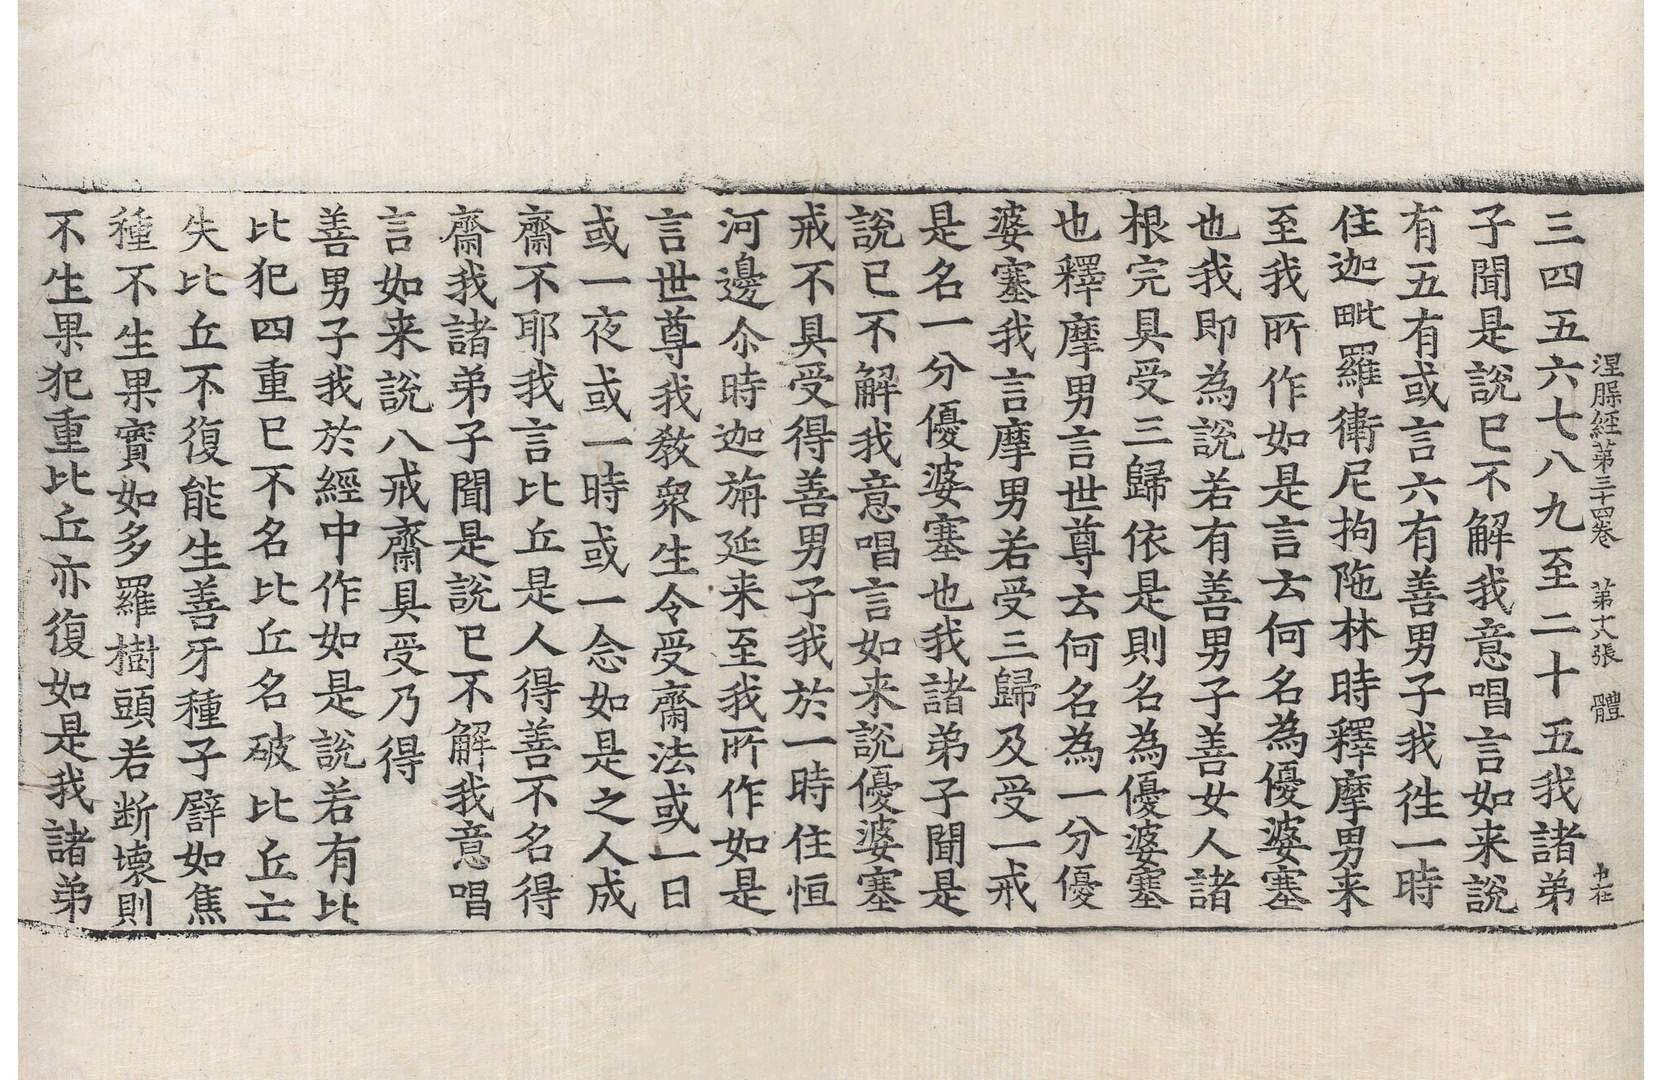 涅槃經第三十四卷 第十八張 體
三四五六七八九至二十五我諸弟
子聞是說已不解我意唱言如来說
有五有或言六有善男子我徃一時
住迦毗羅衛尼拘陁林時釋摩男来
至我所作如是言云何名為優婆塞
也我即為說若有善男子善女人諸
根完具受三歸依是則名為優婆塞
也釋摩男言世尊云何名為一分優
婆塞我言摩男若受三歸及受一戒
是名一分優婆塞也我諸弟子聞是
說已不解我意唱言如来說優婆塞
戒不具受得善男子我於一時住恒
河邊尒時迦旃延来至我所作如是
言世尊我教衆生令受齋法或一日
或一夜或一時或一念如是之人成
齋不耶我言比丘是人得善不名得
齋我諸弟子聞是說已不解我意唱
言如来說八戒齋具受乃得
善男子我於經中作如是說若有比
比犯四重已不名比丘名破比丘亡
失比丘不復能生善牙種子譬如焦
種不生果實如多羅樹頭若断壞則
不生果犯重比丘亦復如是我諸弟